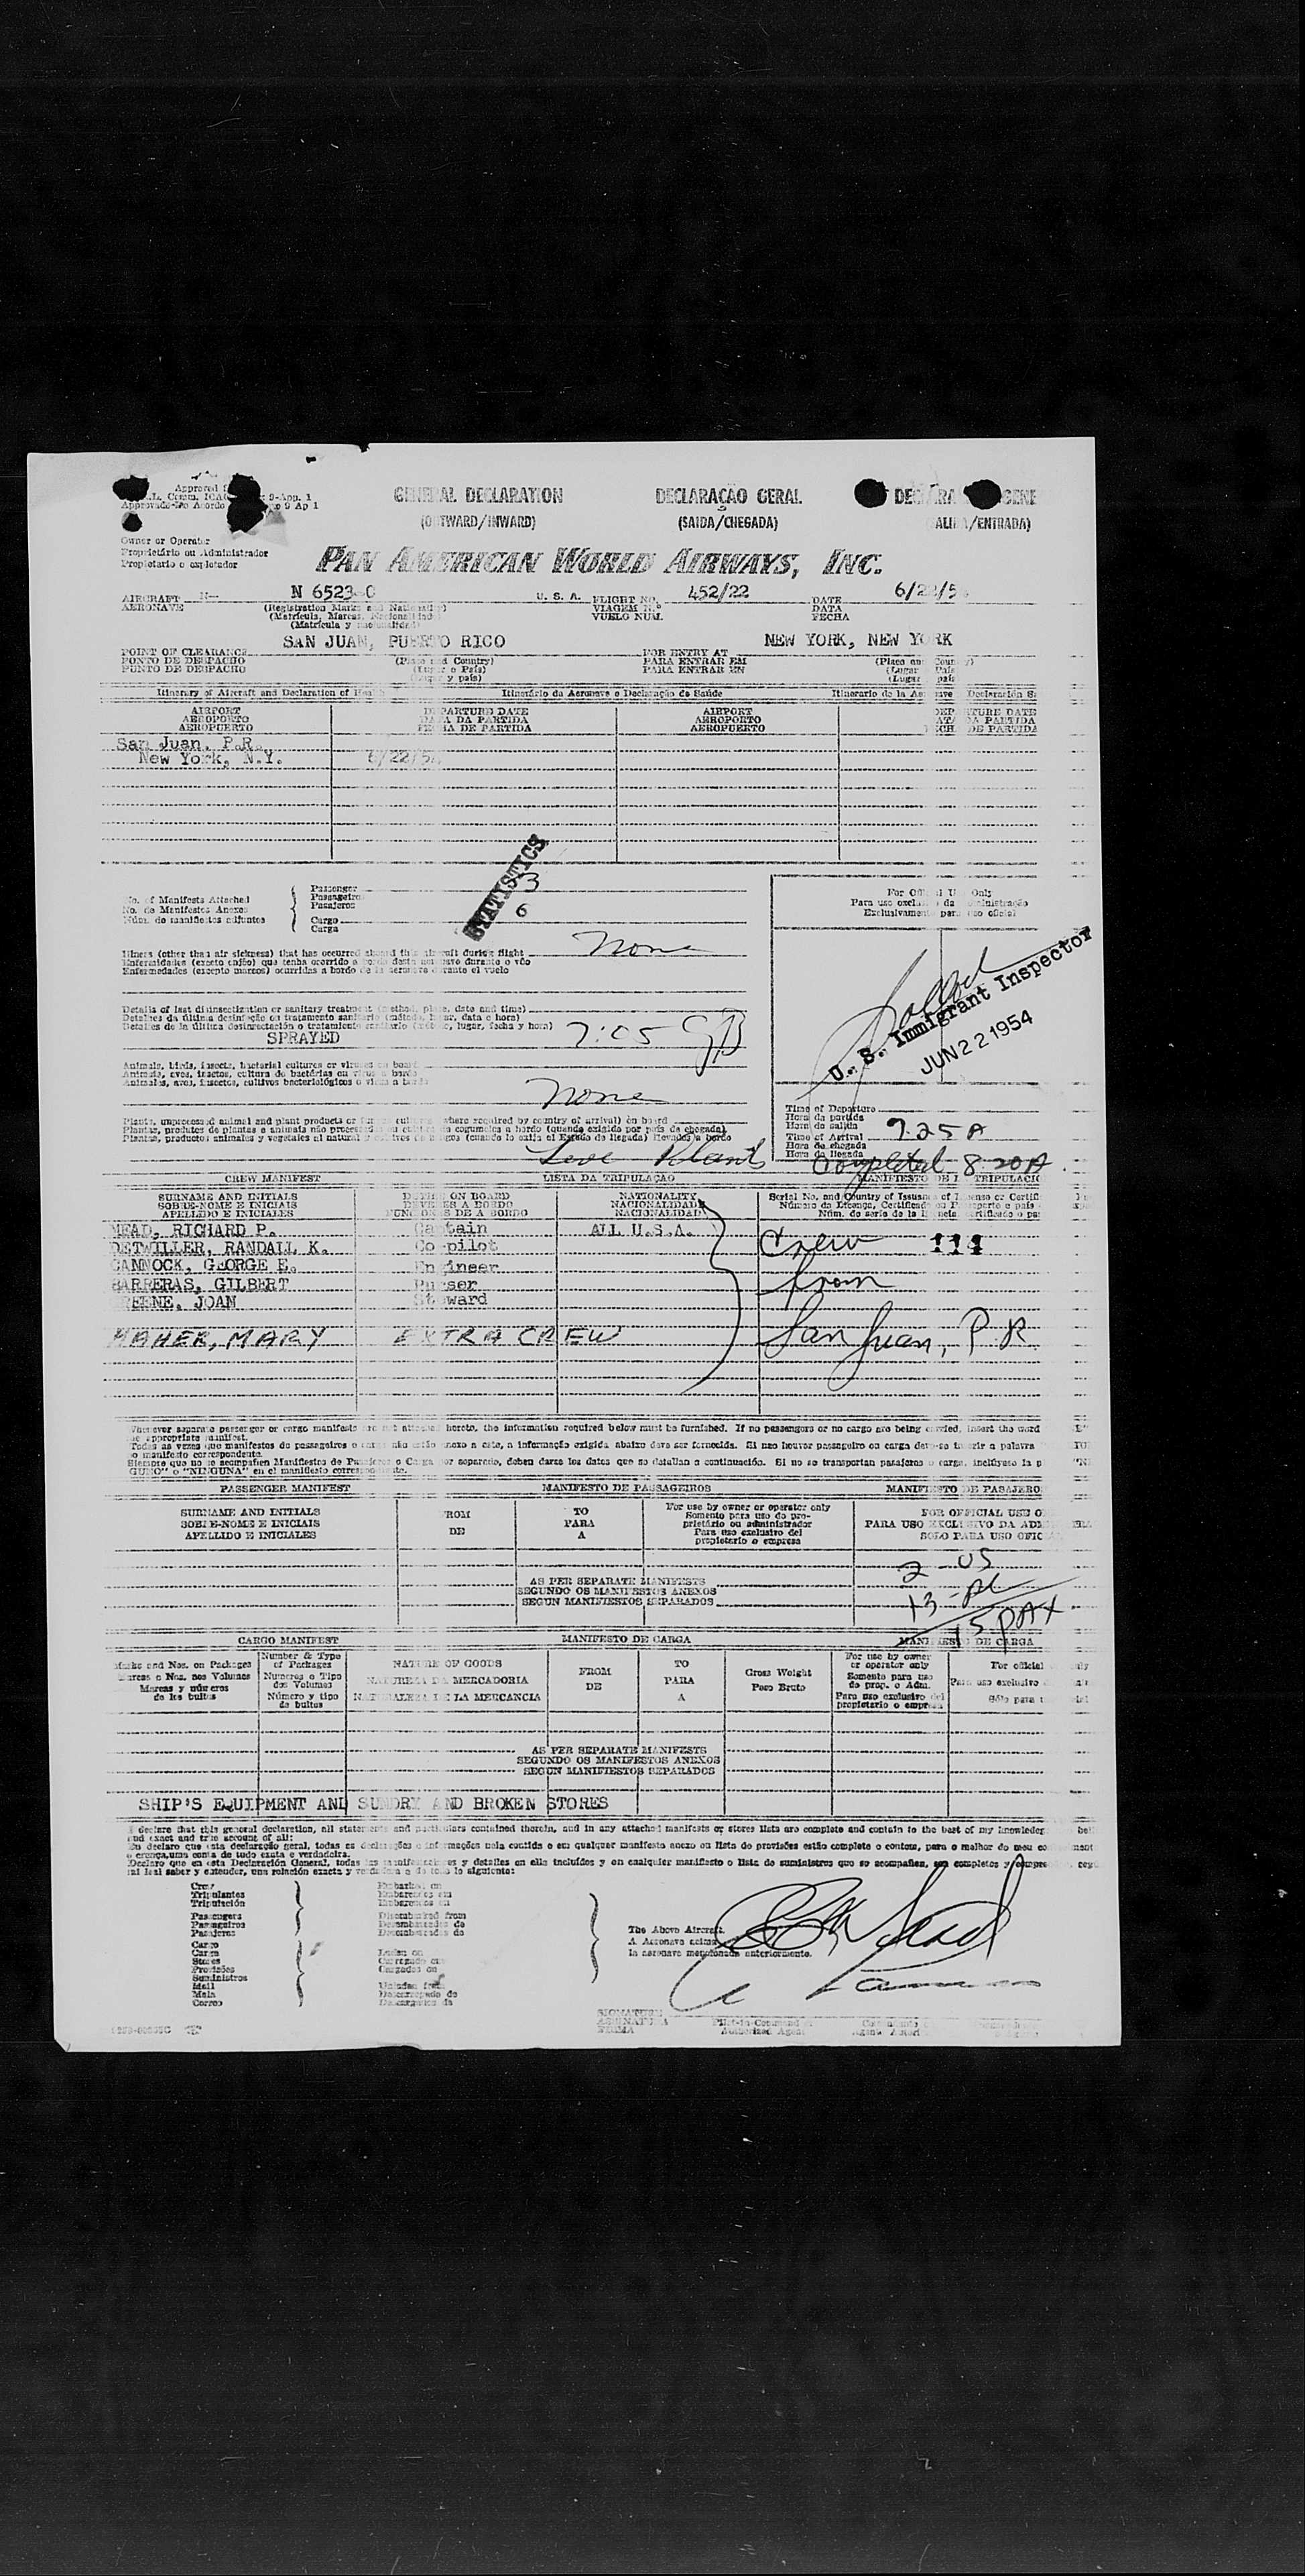 Approved
Comm. ICAO 9-App. 1
Aprovado-De Acordo 9 Ap 1
GENERAL DECLARATION
(OUTWARD/INWARD)
DECLARAÇÃO GERAL
(SAIDA/CHEGADA)
Owner or Operator
Proprietário ou Administrador
Propietario o explotador
PAN AMERICAN WORLD AIRWAYS, INC.
AIRCRAFT N— N 6523 C U. S. A. FLIGHT NO. 452/22 DATE 6/22/5
AERONAVE (Registration Marks and Nationality) VIAGEM N.º DATA
(Matrícula, Marcas, Nacionalidade) VUELO NUM. FECHA
(Matrícula y nacionalidad)
SAN JUAN, PUERTO RICO NEW YORK, NEW YORK
POINT OF CLEARANCE (Place and Country) FOR ENTRY AT (Place and Country)
PONTO DE DESPACHO (Lugar e País) PARA ENTRAR EM (Lugar País
PUNTO DE DESPACHO y país) PARA ENTRAR EN (Lugar país
Itinerary of Aircraft and Declaration of Health Itinerário da Aeronave e Declaração de Saúde Itinerario de la Aeronave Declaración
AIRPORT DEPARTURE DATE AIRPORT DEPARTURE DATE
AEROPORTO DATA DA PARTIDA AEROPORTO DATA DA PARTIDA
AEROPUERTO FECHA DE PARTIDA AEROPUERTO FECHA DE PARTIDA
San Juan, P.R.
New York, N.Y. 6/22/54
STATISTICS
No. of Manifests Attached
No. de Manifestos Anexos
Núm. de manifiestos adjuntos
Passenger 3
Passageiro
Pasajeros
Cargo 6
Carga
For Official Use Only
Para uso exclusivo da Administração
Exclusivamente para uso oficial
Illness (other than air sickness) that has occurred aboard this aircraft during flight None
Enfermidades (exceto enjôo) que tenha ocorrido a bordo desta aeronave durante o vôo
Enfermedades (excepto mareos) ocurridas a bordo de la aeronave durante el vuelo
U. S. Immigrant Inspector
JUN 22 1954
Details of last disinsectization or sanitary treatment (method, place, date and time)
Detalhes da última desinfeção ou tratamento sanitário (método, lugar, data e hora)
Detalles de la última desinsectación o tratamiento sanitario (método, lugar, fecha y hora)
SPRAYED 7:05 GB
Animals, birds, insects, bacterial cultures or viruses on board
Animais, aves, insetos, cultura de bactérias ou virus a bordo
Animales, aves, insectos, cultivos bacteriológicos o virus a bordo
None
Plants, unprocessed animal and plant products or fungus cultures (where required by country of arrival) on board
Plantas, produtos de plantas e animais não processados e culturas de cogumelos a bordo (quando exigido por país de chegada)
Plantas, productos animales y vegetales al natural y cultivos de hongos (cuando lo exija el Estado de llegada) llevados a bordo
Live Plants
Time of Departure
Hora da partida
Hora de salida
Time of Arrival 725A
Hora de chegada
Hora de llegada
Completed 8 20 A.
CREW MANIFEST LISTA DA TRIPULAÇÃO MANIFIESTO DE TRIPULACIÓN
SURNAME AND INITIALS DUTIES ON BOARD NATIONALITY
SOBRE-NOME E INICIAIS DEVERES A BORDO NACIONALIDADE
APELLIDO E INICIALES FUNCIONES DE A BORDO NACIONALIDAD
Serial No. and Country of Issuance of License or Certificate
MEAD, RICHARD P. Captain ALL U.S.A.
DETWILLER, RANDALL K. Co-pilot Crew 114
CANNOCK, GEORGE E. Engineer from
BARRERAS, GILBERT Purser
GREENE, JOAN Steward
MAHER, MARY EXTRA CREW San Juan, P.R
Whenever separate passenger or cargo manifests are not attached hereto, the information required below must be furnished. If no passengers or no cargo are being carried, insert the word
the appropriate manifest.
Todas as vezes que manifestos de passageiros e carga não estão anexo a este, a informação exigida abaixo deve ser fornecida. Si nao houver passageiro ou carga deve-se inserir a palavra
o manifesto correspondente.
Siempre que no se acompañen Manifiestos de Pasajeros o Carga por separado, deben darse los datos que se detallan a continuación. Si no se transportan pasajeros o carga, inclúyase la
GUNO" o "NINGUNA" en el manifiesto correspondiente.
PASSENGER MANIFEST MANIFESTO DE PASSAGEIROS MANIFIESTO DE PASAJEROS
SURNAME AND INITIALS FROM TO For use by owner or operator only FOR OFFICIAL USE
SOBRE-NOME E INICIAIS DE PARA Somente para uso do proprietário ou administrador PARA USO EXCLUSIVO DA
APELLIDO E INICIALES A Para uso exclusivo del propietario o empresa SOLO PARA USO OFICIAL
AS PER SEPARATE MANIFESTS
SEGUNDO OS MANIFESTOS ANEXOS
SEGUN MANIFIESTOS SEPARADOS
2 - US
15 PAX
CARGO MANIFEST MANIFESTO DE CARGA MANIFIESTO DE CARGA
Marks and Nos. on Packages Number & Type of Packages NATURE OF GOODS FROM TO Gross Weight For use by owner or operator only For official
Marcas e Nos. nos Volumes Numeros e Tipo dos Volumes NATUREZA DA MERCADORIA DE PARA Peso Bruto Somente para uso do prop. o Adm. Para uso exclusivo
Marcas y números de los bultos Número y tipo de bultos NATURALEZA DE LA MERCANCIA A Para uso exclusivo del propietario o empresa Sólo para
AS PER SEPARATE MANIFESTS
SEGUNDO OS MANIFESTOS ANEXOS
SEGUN MANIFIESTOS SEPARADOS
SHIP'S EQUIPMENT AND SUNDRY AND BROKEN STORES
I declare that this general declaration, all statements and particulars contained therein, and in any attached manifests or stores lists are complete and contain to the best of my knowledge
and exact and true account of all:
Eu declaro que esta declaração geral, todas as declarações e informações nela contida e em qualquer manifesto anexo ou lista de provisões estão completo e contem, para o melhor do meu
e crença, uma conta de tudo exata e verdadeira.
Declaro que en esta Declaración General, todas las manifestaciones y detalles en ella incluídos y en cualquier manifiesto o lista de suministros que se acompañan, son completos y
mi leal saber y entender, una relación exacta y verdadera de todo lo siguiente:
Crew Embarked on
Tripulantes
Tripulación
Passengers Disembarked from
Passageiros
Pasajeros
Cargo
Carga Laden on
Stores Carregado em
Provisões Cargados en
Suministros
Mail Unladen from
Mala Descarregado de
Correo Descargados de
The Above Aircraft.
A Aeronave acima
la aeronave mencionada anteriormente.
SIGNATURE
ASSINATURA
FIRMA
Pilot-in-Command
Authorized Agent